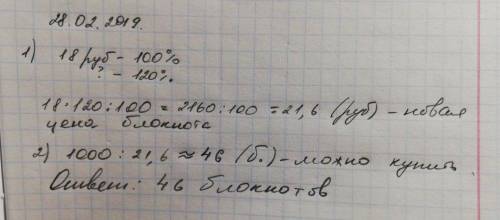 28.02.2019.
1) 18 руб - 100%
? - 120%.
18·120:100 = 2160:100 = 21,6 (руб) - новая
цена блокнота
2) 1000 : 21,6 ≈ 46 (б.) - можно купить.
Ответ: 46 блокнотов